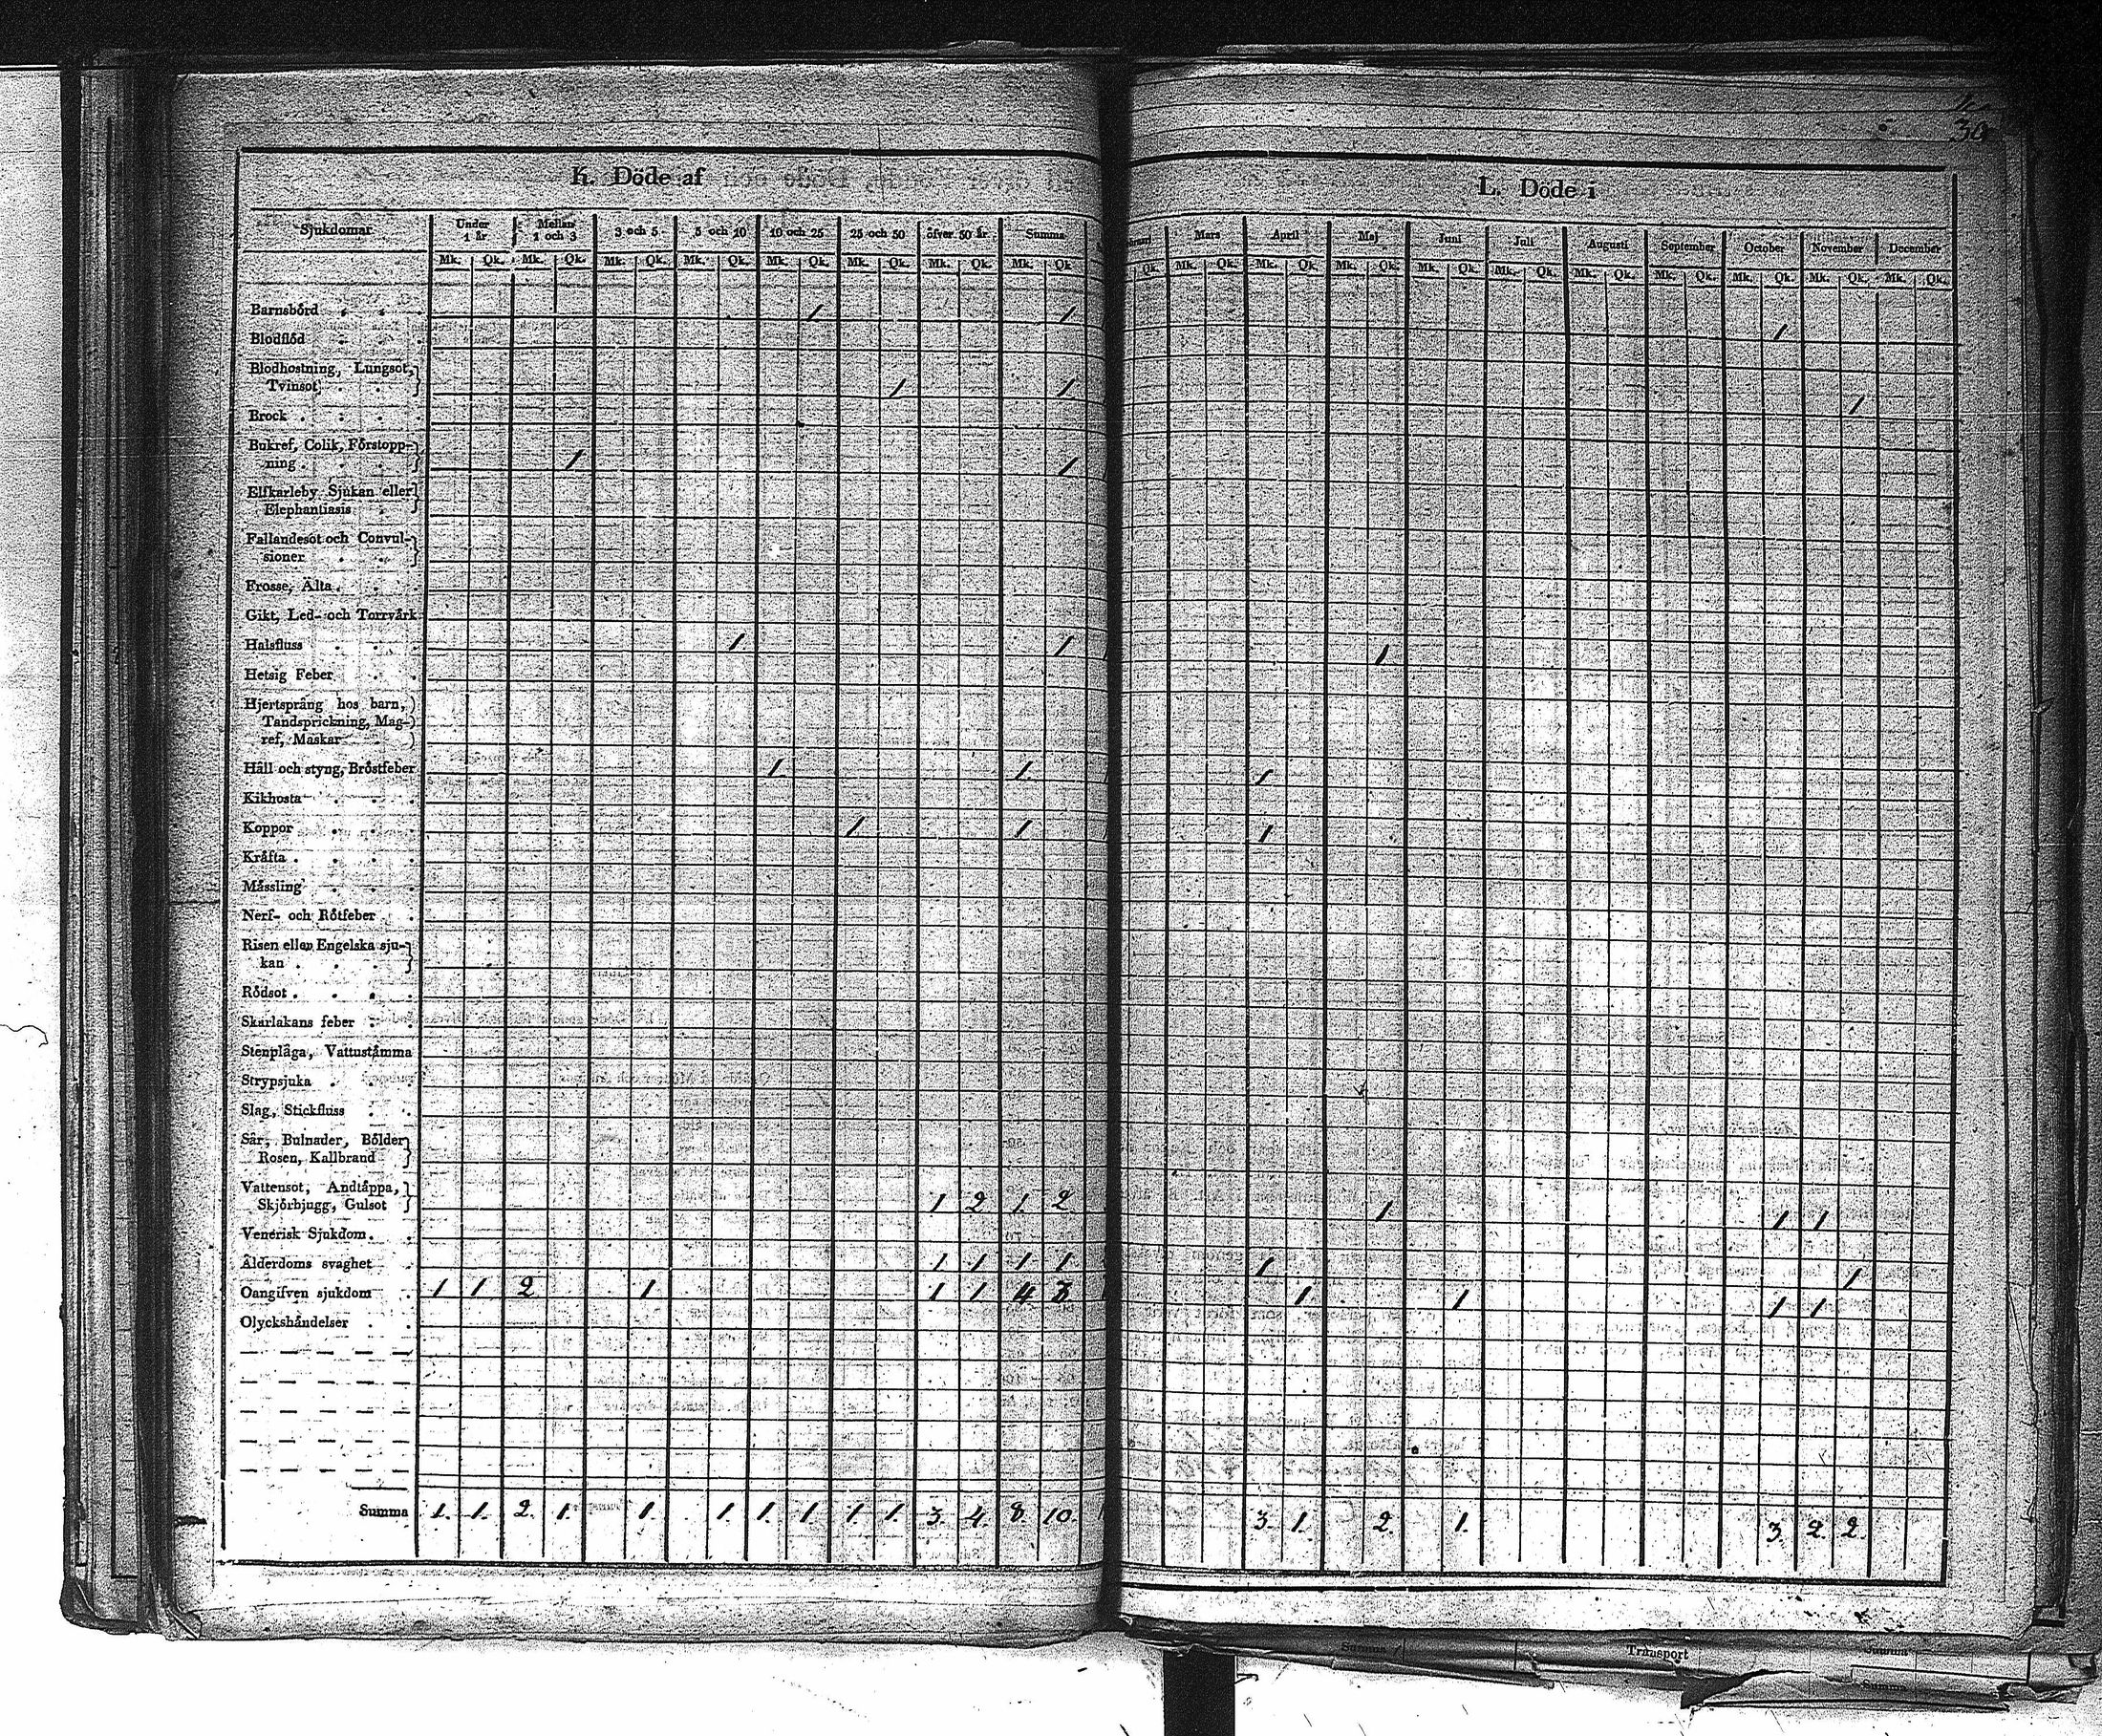 30
K. Döde af
L. Döde i
Sjukdomar Under 1 år Mellan 1 och 3 3 och 5 5 och 10 10 och 25 25 och 50 öfver 50 år Summa Mars April Maj Juni Juli Augusti September October November December
Mk. Qk. Mk. Qk. Mk. Qk. Mk. Qk. Mk. Qk. Mk. Qk. Mk. Qk. Mk. Qk. Qk. Mk. Qk. Mk. Qk. Mk. Qk. Mk. Qk. Mk. Qk. Mk. Qk. Mk. Qk. Mk. Qk. Mk. Qk. Mk. Qk.
Barnsbörd 1 1 1
Blodflöd
Blodhostning, Lungsot,
Tvinsot 1 1 1
Brock
Bukref, Colik, Förstopp-
ning 1 1
Elfkarleby Sjukan eller
Elephantiasis
Fallandesot och Convul-
sioner
Frosse, Älta
Gikt, Led- och Torrvärk
Halsfluss 1 1 1
Hetsig Feber
Hjertsprång hos barn,
Tandsprickning, Mag-
ref, Maskar
Håll och styng, Bröstfeber 1 1 1
Kikhosta
Koppor 1 1 1
Kräfta
Mässling
Nerf- och Rötfeber
Risen eller Engelska sju-
kan
Rödsot
Skarlakans feber
Stenplåga, Vattustämma
Strypsjuka
Slag, Stickfluss
Sår, Bulnader, Bölder
Rosen, Kallbrand
Vattensot, Andtäppa,
Skjörbjugg, Gulsot 1 2 1 2 1 1 1
Venerisk Sjukdom
Ålderdoms svaghet 1 1 1 1 1 1
Oangifven sjukdom 1 1 2 1 1 1 4 3 1 1 1 1
Olyckshändelser
Summa 1. 1. 2. 1. 1. 1. 1. 1. 1. 1. 3. 4. 8. 10. 3. 1. 2. 1. 3. 2. 2.
Summa Transport Summa
Summa